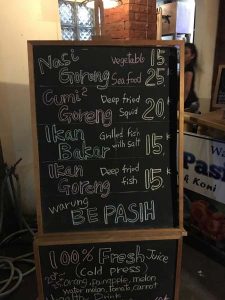 Nasi Vegetable 15 K
Goreng Sea food 25 K
Cumi² Deep fried
Goreng Squid 20 K
Ikan Grilled fish
Bakar with salt 15 K
Ikan Deep fried
Goreng fish 15 K
warung
BE PASIH
Wa
Pasi
& Koni
100% Fresh Juice
(Cold press)
orang, pineapple, melon
water melon, tomato, carrot
Drink